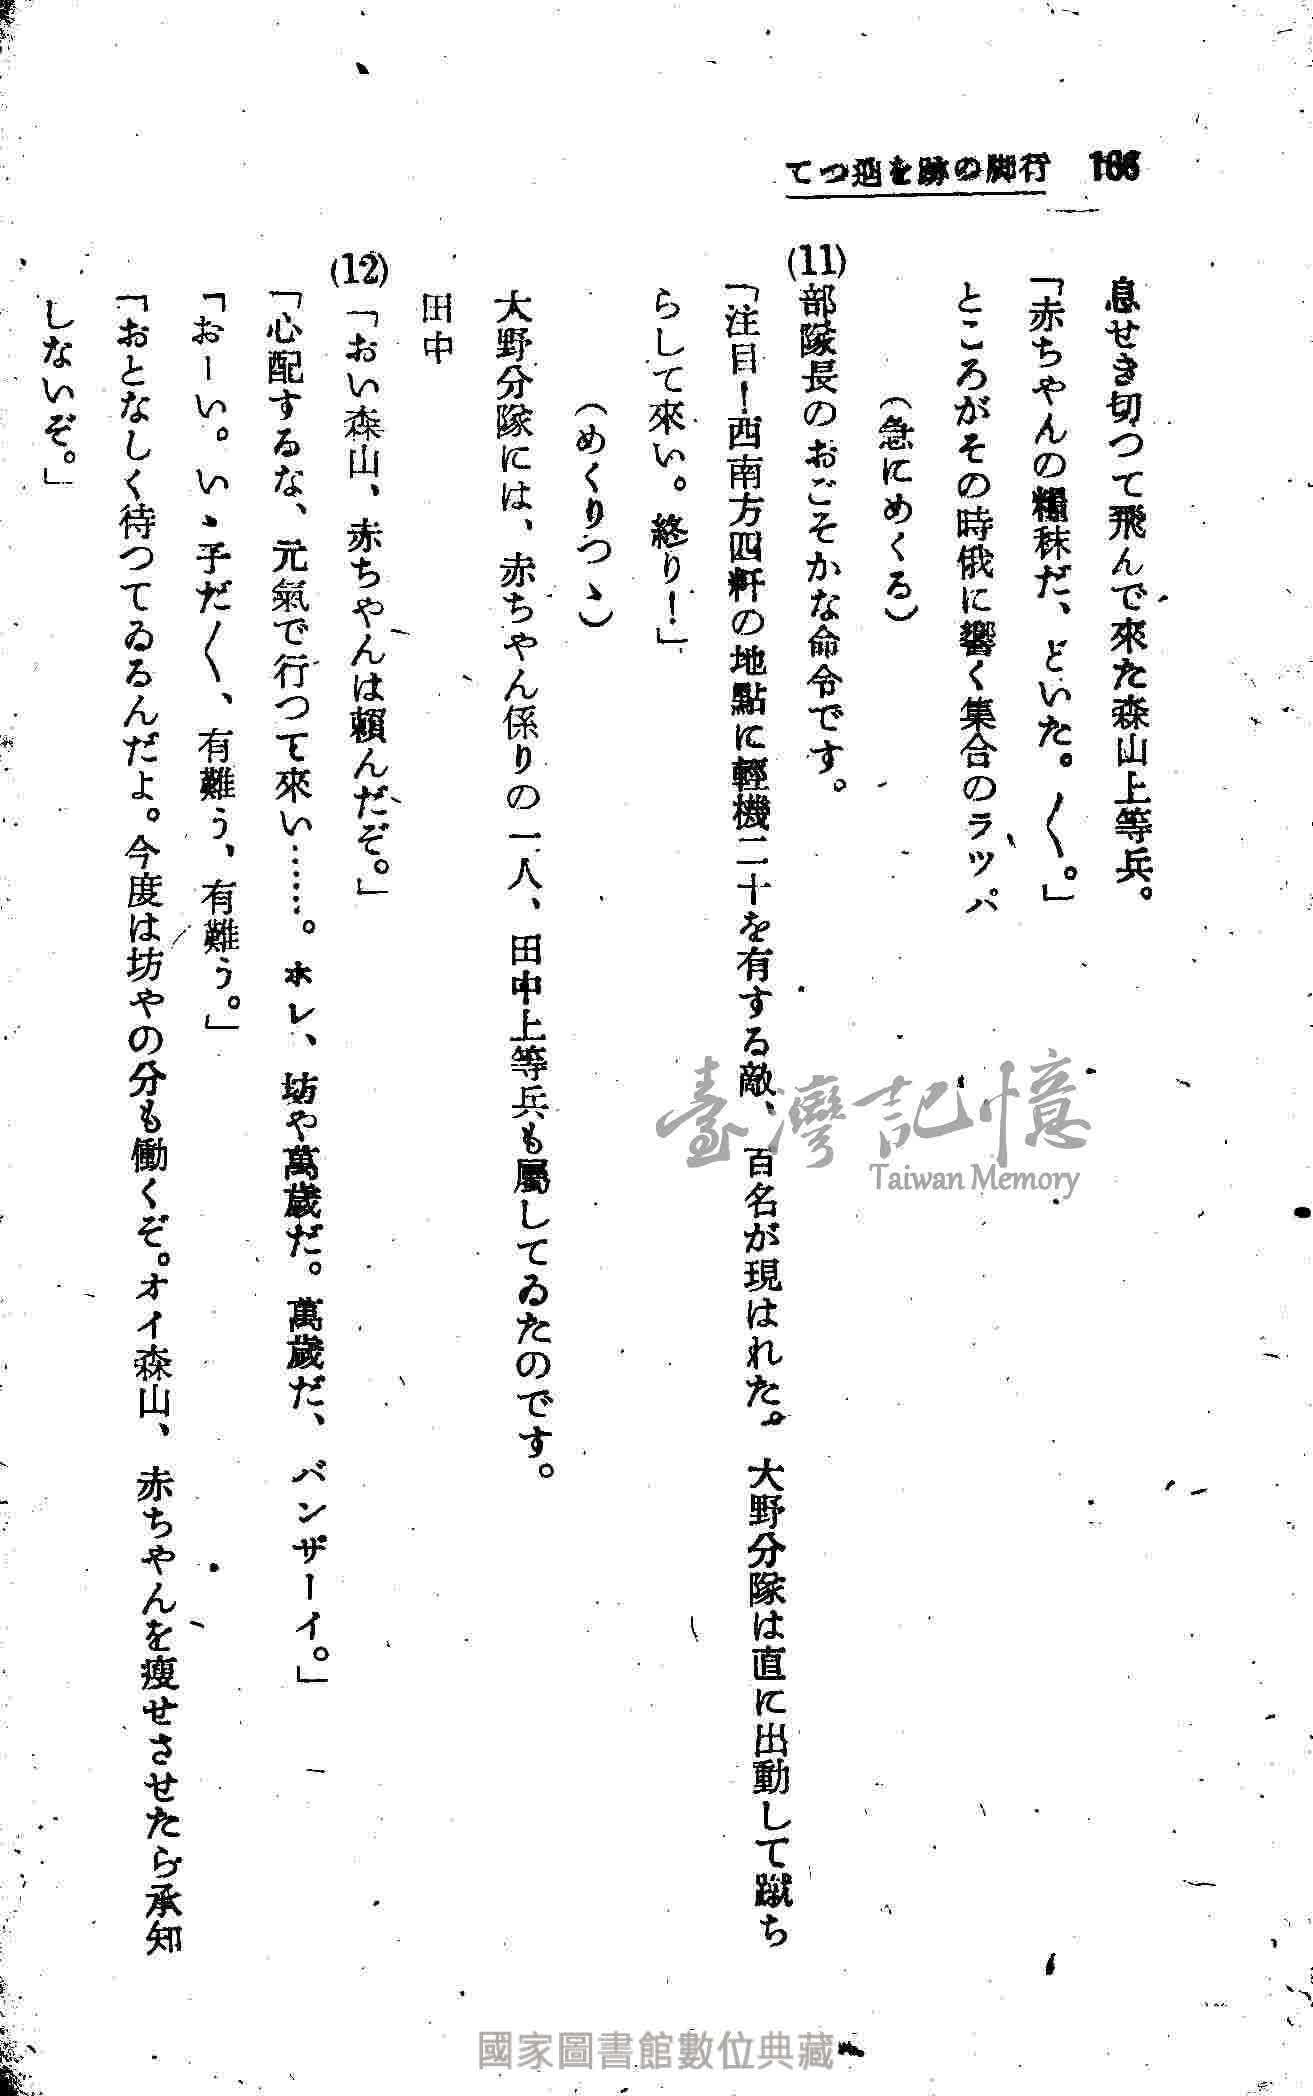 てつ廻を跡の脚行
息せき切つて飛んで來た森山上等兵。
「赤ちやんの糧秣だ、といた。〱。」
ところがその時俄に響く集合のラツパ
（急にめくる）
(11)部隊長のおごそかな命令です。
「注目！西南方四粁の地點に輕機二十を有する敵、百名が現はれた。大野分隊は直に出動して蹴ち
らして來い。終り！」
（めくりつゝ）
大野分隊には、赤ちやん係りの一人、田中上等兵も屬してゐたのです。
田中
(12)「おい森山、赤ちやんは頼んだぞ。」
「心配するな、元氣で行つて來い……。ホレ、坊や萬歲だ。萬歲だ、バンザーイ。」
「おーい。いゝ子だ〱、有難う、有難う。」
「おとなしく待つてゐるんだよ。今度は坊やの分も働くぞ。オイ森山、赤ちやんを瘦せさせたら承知
しないぞ。」
臺灣記憶
Taiwan Memory
國家圖書館數位典藏